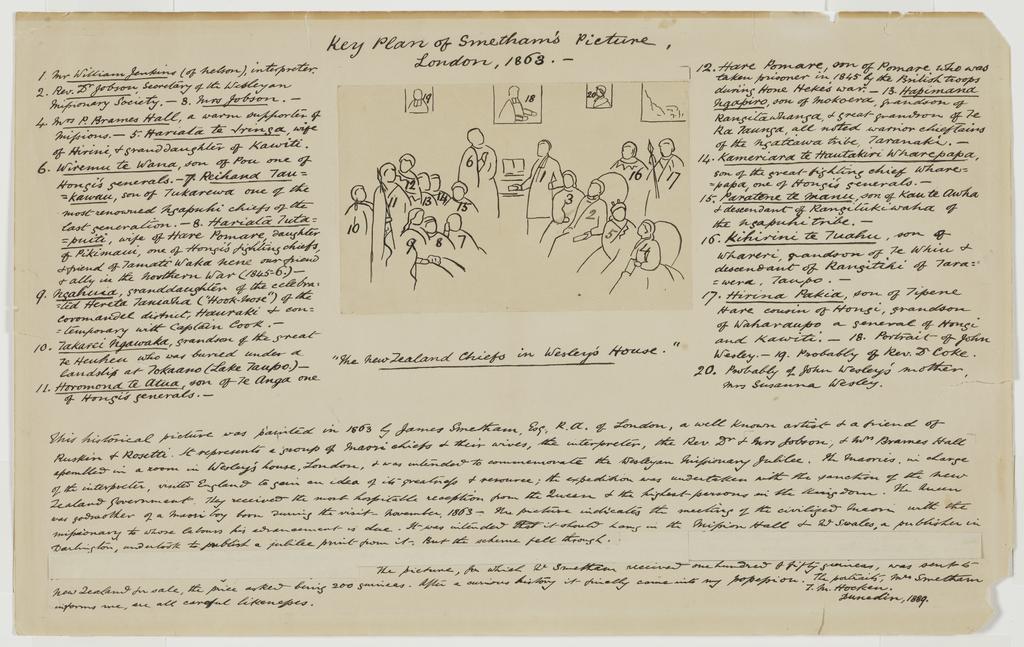 Key Plan of Smetham's Picture,
London, 1863. —
1. Mr William Jenkins (of Nelson), interpreter.
2. Rev. Dr Jobson, Secretary of the Wesleyan
Missionary Society. — 3. Mrs Jobson. —
4. Mrs P. Brames Hall, a warm supporter of
missions. — 5. Hariata te Iringa, wife
of Hirini, & granddaughter of Kawiti.
6. Wiremu te Wana, son of Pou one of
Hongi's generals. — 7. Reihana Tau=
=kawau, son of Tukarewa one of the
most renowned Ngapuhi chiefs of the
last generation. — 8. Hariata Tuta=
=puiti, wife of Hare Pomare, daughter
of Pikimaui, one of Hongi's fighting chiefs,
& friend of Tamati Waka Nene our friend
& ally in the Northern War (1845-6.) —
9. Ngahuia, granddaughter of the celebra=
=ted Hereta Taniwha ("Hook-nose") of the
Coromandel district, Hauraki & con=
=temporary with Captain Cook. —
10. Takarei Ngawaka, grandson of the great
Te Heuheu who was buried under a
landslip at Tokaano (Lake Taupo.) —
11. Horomona te Atua, son of Te Anga one
of Hongi's generals. —
19
18
20
6
1
12
11
13
14
15
10
9
8
7
3
2
5
4
16
17
"The New Zealand Chiefs in Wesley's House."
12. Hare Pomare, son of Pomare who was
taken prisoner in 1845 by the British troops
during Hone Hekes war. — 13. Hapimana
Ngapiro, son of Mokoera, grandson of
Rangitawhanga, & great grandson of Te
Ra Taunga, all noted warrior chieftains
of the Ngatiawa tribe, Taranaki. —
14. Kameriara te Hautakiri Wharepapa,
son of the great fighting chief Whare=
=papa, one of Hongi's generals. —
15. Paratene te Manu, son of Kau te Awha
& descendant of Rangitukiwaha of
the Ngapuhi tribe.
16. Kihirini te Tuahu, son of
Whareri, grandson of Te Whiu &
descendant of Rangitihi of Tara=
=wera, Taupo. —
17. Hirina Pakia, son of Tipene
Hare cousin of Hongi, grandson
of Waharaupo a general of Hongi
and Kawiti. — 18. Portrait of John
Wesley. — 19. Probably of Rev. Dr Coke.
20. Probably of John Wesley's mother,
Mrs Susanna Wesley.
This historical picture was painted in 1863 by James Smetham, Esq, R.A. of London, a well known artist & a friend of
Ruskin & Rosetti. It represents a group of Maori chiefs & their wives, the interpreter, the Rev Dr & Mrs Jobson, & Mrs Brames Hall
assembled in a room in Wesley's house, London, & was intended to commemorate the Wesleyan Missionary Jubilee. The Maoris, in charge
of the interpreter, visited England to gain an idea of its greatness & resource; the expedition was undertaken with the sanction of the New
Zealand Government. They received the most hospitable reception from the Queen & the highest persons in the kingdom. The Queen
was godmother of a Maori boy born during the visit - November, 1863 — The picture indicates the meeting of the civilized Maori with the
missionary to whose labours his advancement is due. It was intended that it should hang in the Mission Hall & Mr Swales, a publisher in
Darlington, undertook to publish a jubilee print from it. But the scheme fell through.
The picture, for which Mr Smetham received one hundred & fifty guineas, was sent to
New Zealand for sale, the price asked being 200 guineas. After a curious history it finally came into my possession. The portraits, Mrs Smetham
informs me, are all careful likenesses.
T. M. Hocken.
Dunedin, 1889.